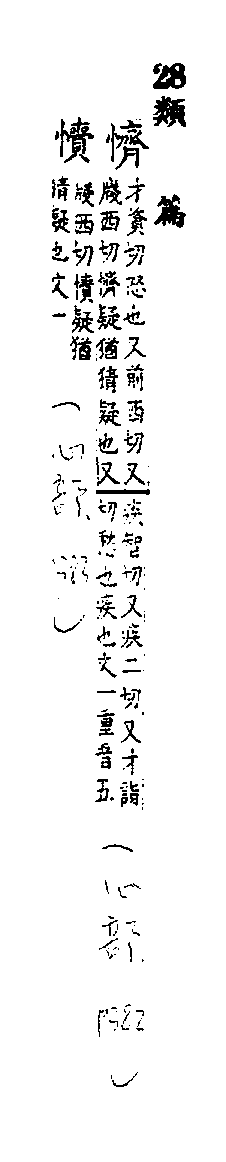 28類篇
懠
才資切恐也又前西切又
牋西切懠疑猶猜疑也又
疾智切又疾二切又才詣
切愁也疾也文一重音五
牋西切
疑猶
猜疑也文一